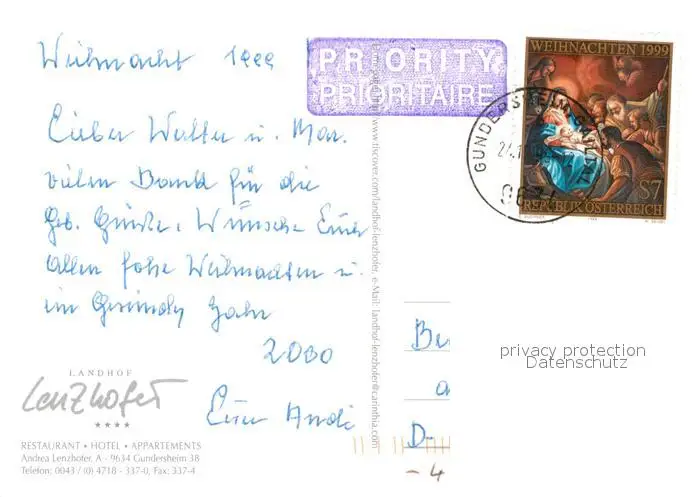 Weihnacht 1999
Lieber Walter u. Mar.
vielen Dank für die
Geb. Grüße, Wünsche Euch
allen frohe Weihnachten u.
ein Gesundes Jahr
2000
Euer Andi
LANDHOF
Lenzhofer
★★★★
RESTAURANT • HOTEL • APPARTEMENTS
Andrea Lenzhofer, A - 9634 Gundersheim 38
Telefon: 0043 / (0) 4718 - 337-0, Fax: 337-4
www.tiscover.com/landhof-lenzhofer, e-Mail: landhof-lenzhofer@carinthia.com
PRIORITY
PRIORITAIRE
WEIHNACHTEN 1999
S7
REPUBLIK ÖSTERREICH
GUNDERSHEIM
D-
- 4
privacy protection
Datenschutz